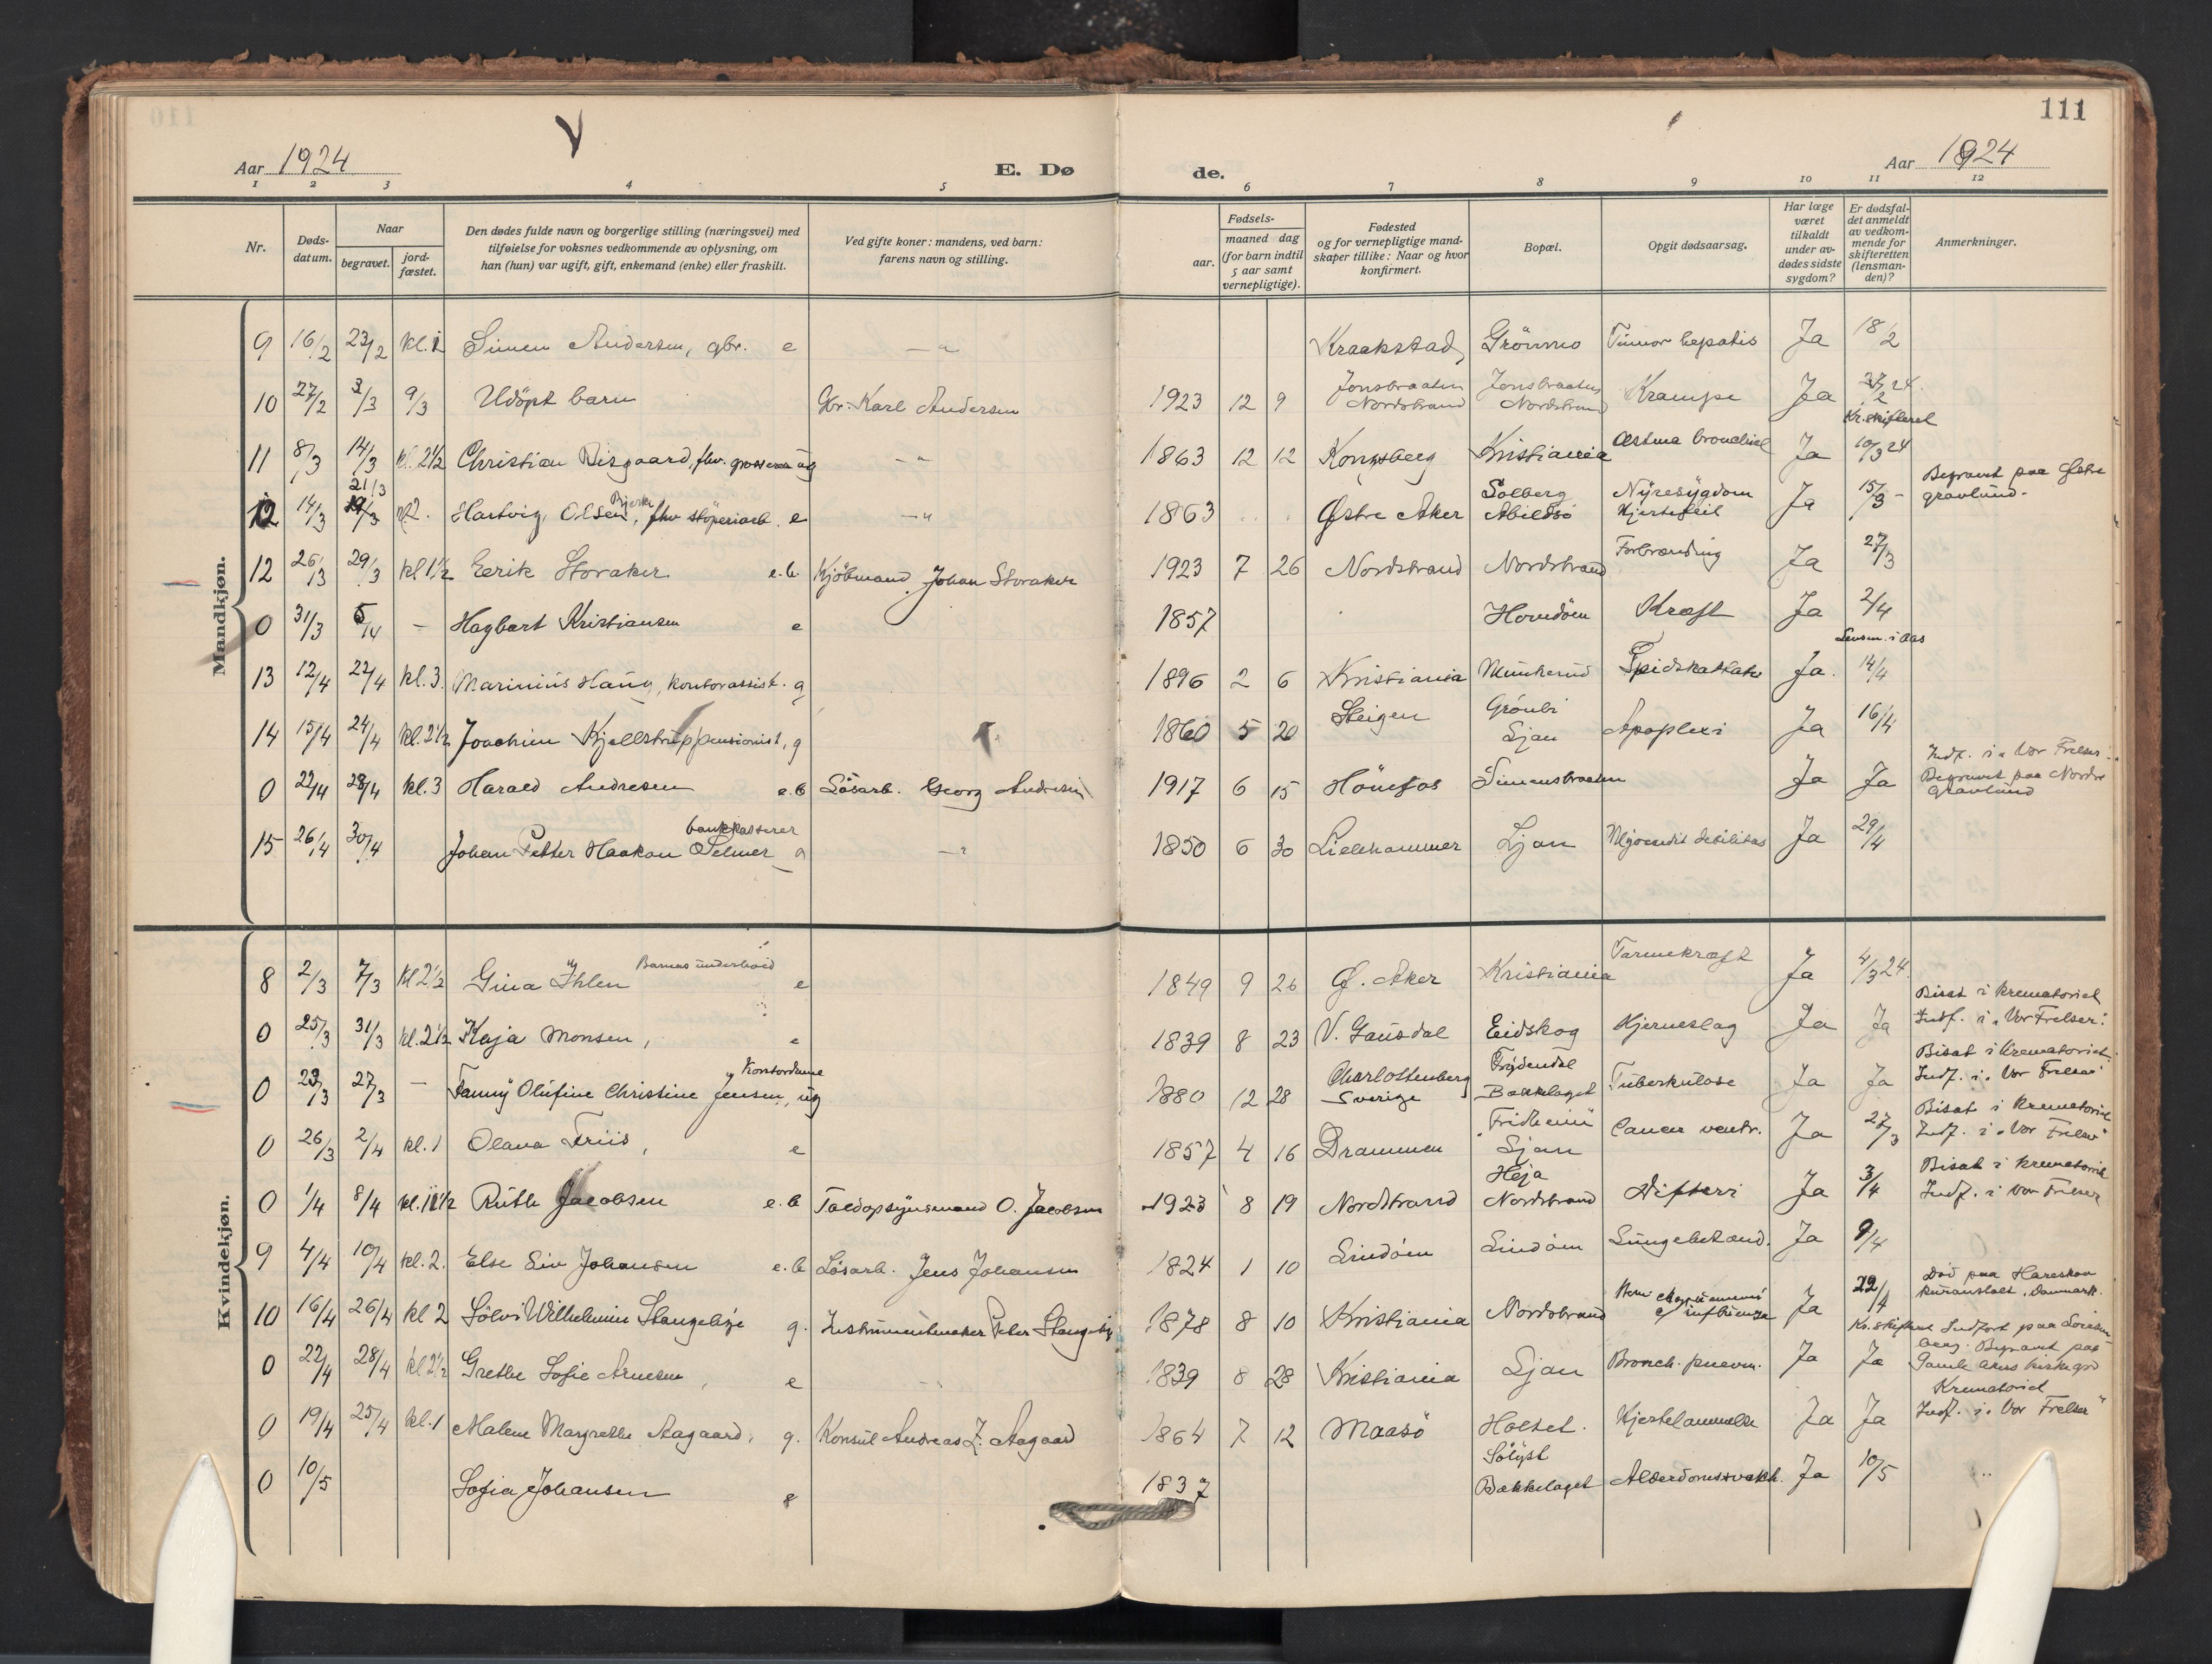 111
Aar 1924
E. Dø
de.
Aar 1924
1 2 3 4 5 6 7 8 9 10 11 12
Nr.
Døds-
datum.
Naar
begravet.
jord-
fæstet.
Den dødes fulde navn og borgerlige stilling (næringsvei) med
tilføielse for voksnes vedkommende av oplysning, om
han (hun) var ugift, gift, enkemand (enke) eller fraskilt.
Ved gifte koner: mandens, ved barn:
farens navn og stilling.
Fødsels-
aar.
maaned dag
(for barn indtil
5 aar samt
vernepligtige).
Fødested
og for vernepligtige mand-
skaper tillike: Naar og hvor
konfirmert.
Bopæl.
Opgit dødsaarsag.
Har læge
været
tilkaldt
under av-
dødes sidste
sygdom?
Er dødsfal-
det anmeldt
av vedkom-
mende for
skifteretten
(lensman-
den)?
Anmerkninger.
Mandkjøn.
9 16/2 23/2 kl. 1 Simen Andersen, gbr. e — " Kraakstad Grönmo Tumor hepatis Ja 18/2
10 27/2 3/3 9/3 Udöpt barn Gbr. Karl Andersen 1923 12 9 Jonsbraaten Nordstrand Jonsbraaten Nordstrand Krampe Ja 27/2 24.
Kr. skifteret
11 8/3 14/3 kl. 2½ Christian Risgaard, fhv. grosserer ug — " 1863 12 12 Kongsberg Kristiania Astma bronchial Ja 10/3 24
21/3
12 14/3 19/3 kl. 2. Hartvig Olsen Bjerke, fhv stöperiarb. e — " 1863 Østre Aker Solberg Abildsö Nyresygdom Hjertefeil Ja 15/3 Begravet paa Østre gravlund.
12 26/3 29/3 kl 1½ Eerik Storaker e.b. Kjöbmand Johan Storaker 1923 7 26 Nordstrand Nordstrand Forbrænding Ja 27/3
0 31/3 5/4 — Hagbart Kristiansen e 1857 Hovedöen Kræft Ja 2/4
Lensm. i Aas
13 12/4 22/4 kl. 3. Marinius Haug, kontorassist. g 1896 2 6 Kristiania Munkerud Ja. 14/4
14 15/4 24/4 kl. 2½ Joachim Kjellstrup pensionist, g 1860 5 20 Steigen Grönli Ljan Apoplexi Ja 16/4
0 22/4 28/4 kl. 3 Harald Andresen e.b Lösarb. Georg Andresen 1917 6 15 Hönefos Simensbraaten Ja Ja Indf. i "Vor Frelser". Begravet paa Nordre gravlund
15 26/4 30/4 Johan Petter Haakon Selmer bankkasserer g — " 1850 6 30 Lillehammer Ljan debilitas Ja 29/4
Kvindekjøn.
8 2/3 7/3 kl 2½ Gina Ihlen Barnas underhold e 1849 9 26 Ø. Aker Kristiania Tarmekræft Ja 4/3 24.
0 25/3 31/3 kl. 2½ Kaja Monsen, e 1839 8 23 V. Gausdal Eidskog Hjerneslag Ja Ja Bisat i krematoriet Indf. i "Vor Frelser".
0 23/3 27/3 — Fanny Olufine Christine Jensen, Kontordame ug 1880 12 28 Charlottenberg Sverige Frydendal Bækkelaget Tuberkulose Ja Ja Bisat i krematoriet. Indf. i "Vor Frelser"
0 26/3 2/4 kl. 1 Olava Friis, e 1857 4 16 Drammen "Fridheim" Ljan Cancer ventr. Ja 27/3 Bisat i krematoriet Indf. i "Vor Frelser"
0 1/4 8/4 kl. 11½ Ruth Jacobsen e.b Toldopsynsmand O. Jacobsen 1923 8 19 Nordstrand Heja Nordstrand Difteri Ja 3/4 Bisat i krematoriet Indf. i Vor Frelser
9 4/4 10/4 kl. 2. Else Liv Johansen e.b Lösarb. Jens Johansen 1824 1 10 Lindöen Lindöen Lungebetænd. Ja 9/4
10 16/4 26/4 kl 2 Sölvi Wilhelmine Stangebye g. Instrumentmaker Peter Stangeby 1878 8 10 Kristiania Nordstrand influenza Ja 22/4 Död paa Hareskov kuranstalt, Danmark.
Kr. skifteret
0 22/4 28/4 kl 2½ Grethe Sofie Arnesen, e 1839 8 28 Kristiania Ljan Bronch. pneum. Ja Ja Begravet paa Gamle Akers kirkegrd
0 19/4 25/4 kl. 1 Malene Margrethe Aagaard, g. Konsul Andreas Z. Aagaard 1864 7 12 Maasö Holtet. Hjertelammelse Ja Ja Krematoriet Indf. i "Vor Frelser"
0 10/5 Sofia Johansen e 1837 Sölyst Bækkelaget Alderdomssvakh. Ja 10/5